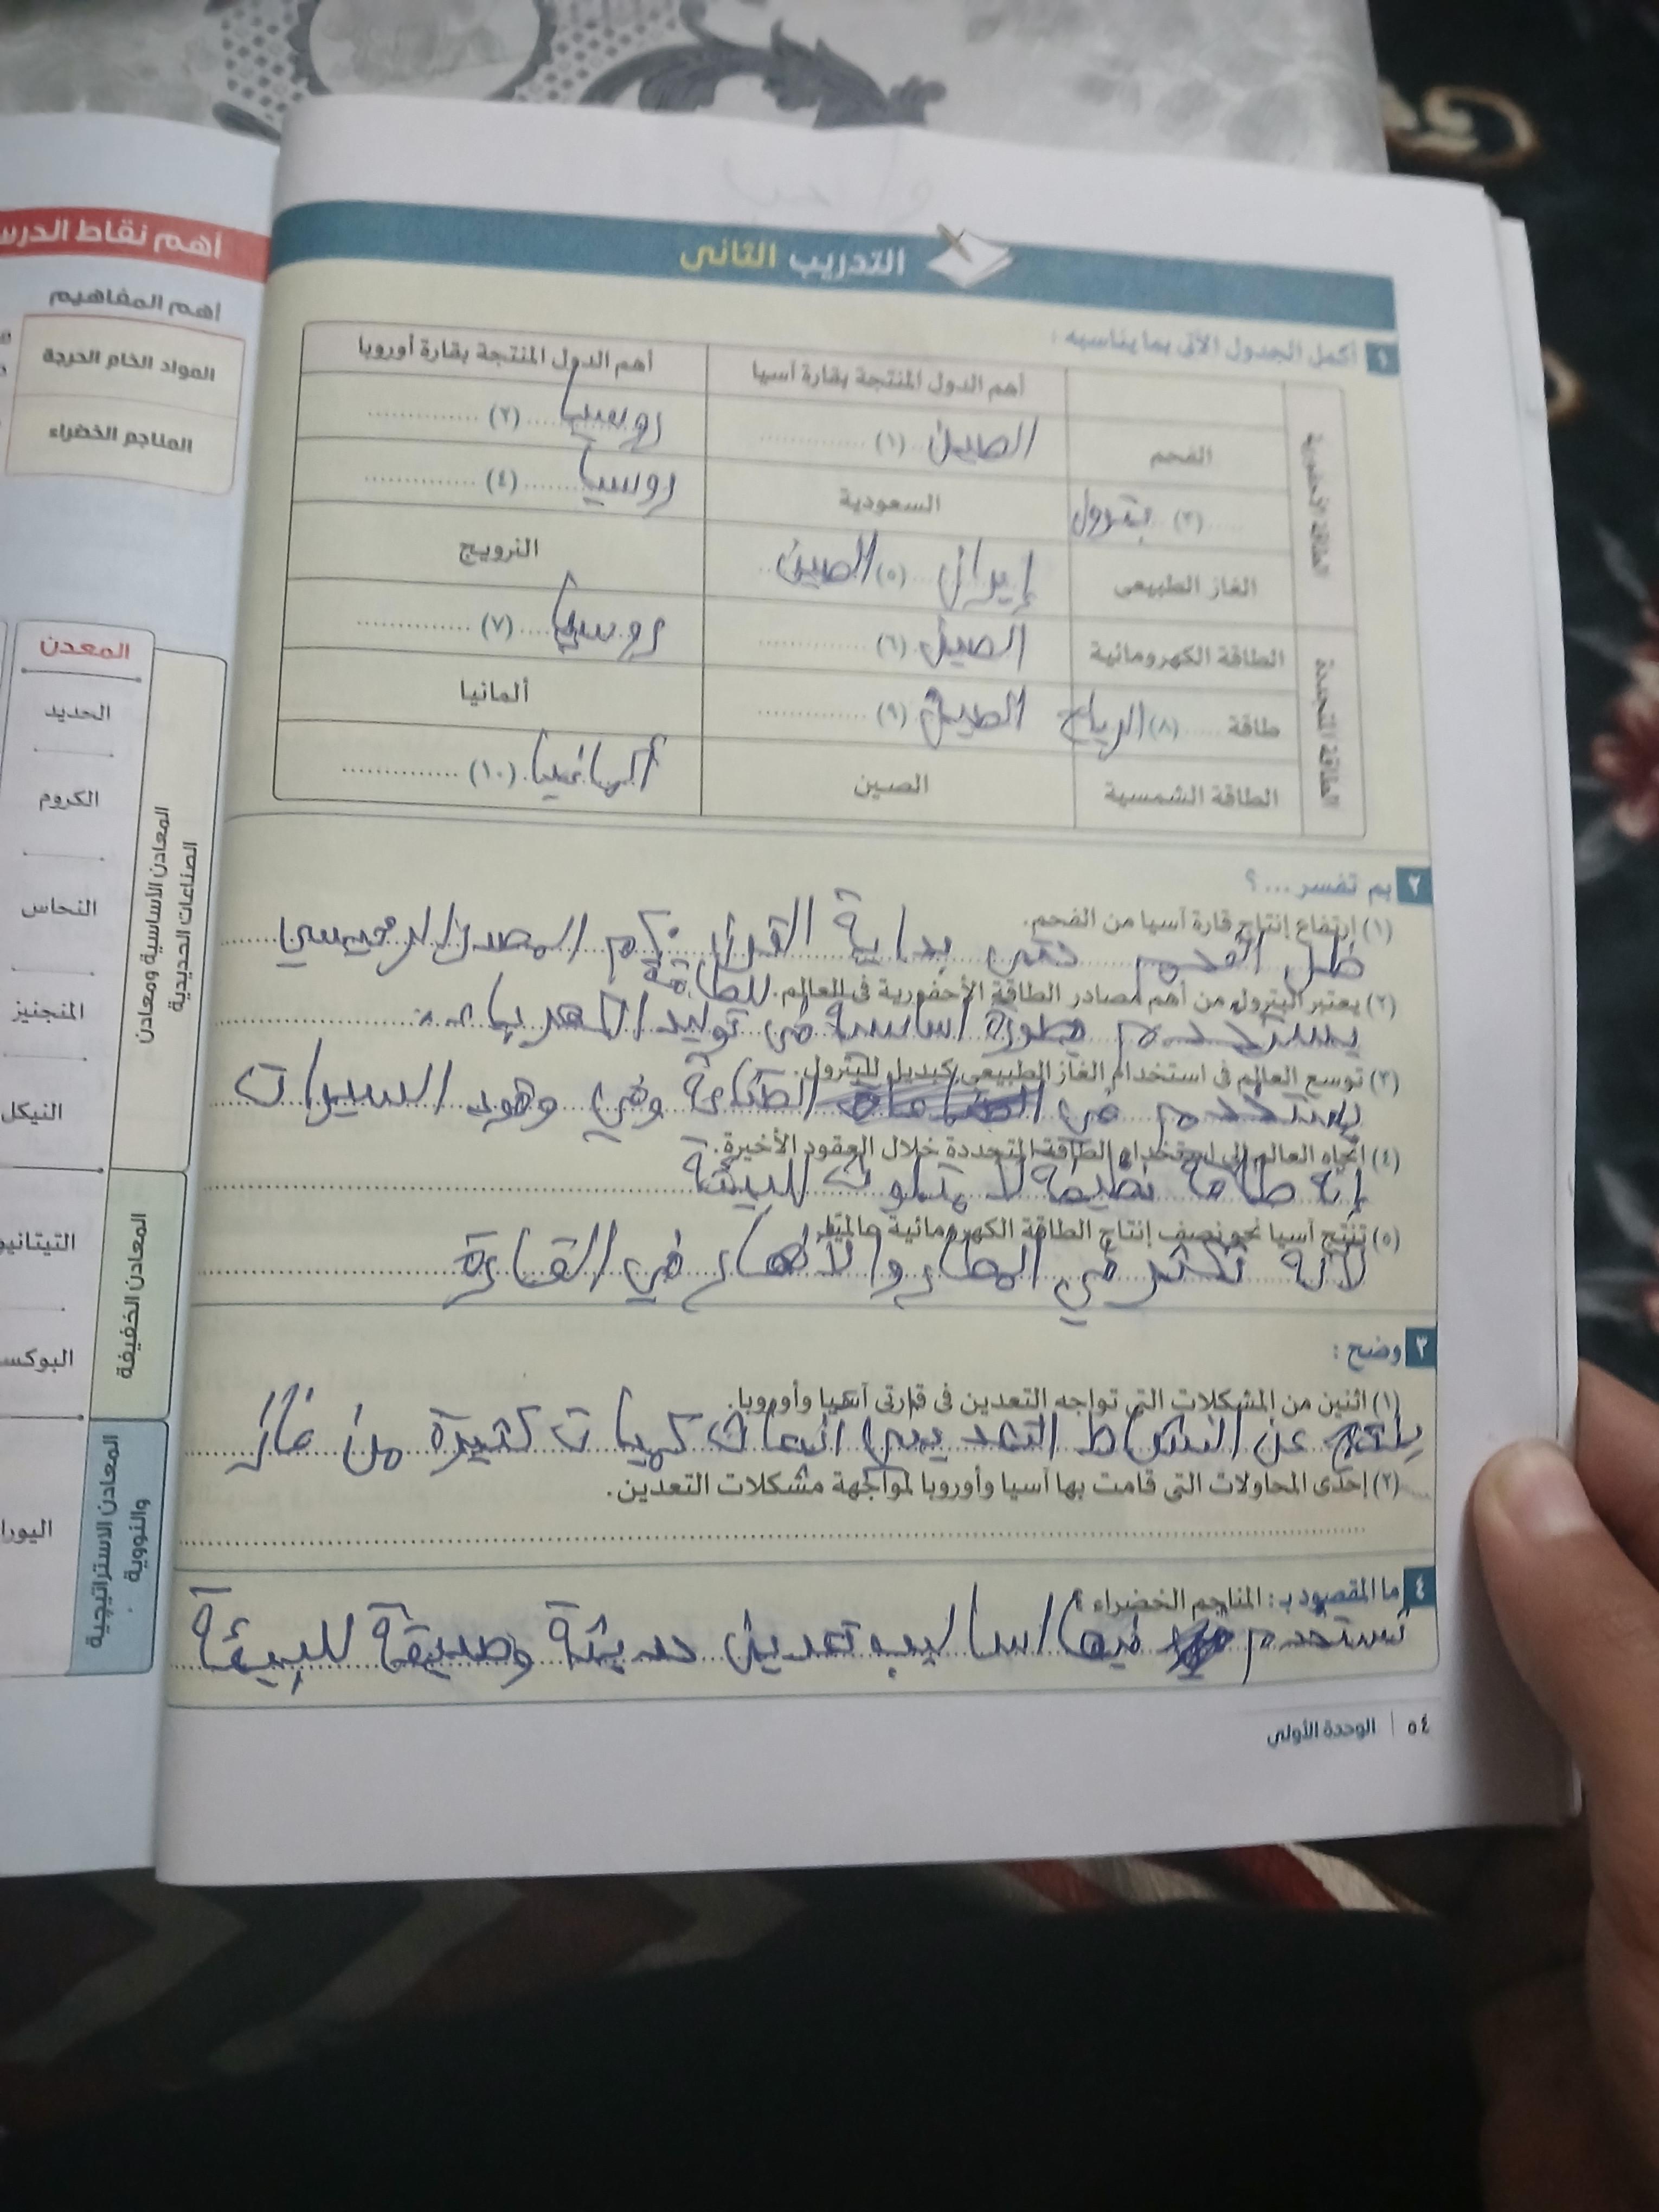 أهم نقاط الدرس
أهم المفاهيم
المواد الخام الحرجة
المناجم الخضراء
المعدن
الحديد
الكروم
النحاس
المنجنيز
النيكل
البوكس
اليورا
المعادن الأساسية ومعادن
الصناعات الحديدية
المعادن الخفيفة
المعادن الاستراتيجية
والنووية
التدريب الثانى
١ أكمل الجدول الآتى بما يناسبه :
أهم الدول المنتجة بقارة آسيا
أهم الدول المنتجة بقارة أوروبا
الطاقة الأحفورية
الفحم
الصين (١)
روسيا (٢)
(٣) بترول
السعودية
روسيا (٤)
الغاز الطبيعى
إيران (٥) الصين
النرويج
الطاقة المتجددة
الطاقة الكهرومائية
الصين (٦)
روسيا (٧)
طاقة (٨) الرياح
الصين (٩)
ألمانيا
الطاقة الشمسية
الصين
ألمانيا (١٠)
٢ بم تفسر ... ؟
(١) ارتفاع إنتاج قارة آسيا من الفحم.
ظل الفحم حتى بداية القرن ٢٠م المصدر الرئيسي
للطاقة
(٢) يعتبر البترول من أهم مصادر الطاقة الأحفورية فى العالم.
يستخدم بصورة اساسية في توليد الكهرباء
(٣) توسع العالم فى استخدام الغاز الطبيعى كبديل للبترول.
يستخدم في الصناعة وفي وقود السيرات
(٤) اتجاه العالم إلى استخدام الطاقة المتجددة خلال العقود الأخيرة.
إنه طاقة نظيفة لا للبيئة
(٥) تنتج آسيا نحو نصف إنتاج الطاقة الكهرومائية عالميًا.
لأنه تكثر في والأنهار في القارة
٣ وضح :
(١) اثنين من المشكلات التى تواجه التعدين فى قارتى آسيا وأوروبا.
ينتج عن النشاط التعديني انبعاث كميات كثيرة من غاز
(٢) إحدى المحاولات التى قامت بها آسيا وأوروبا لمواجهة مشكلات التعدين.
٤ ما المقصود بـ : المناجم الخضراء ؟
تستخدم فيها اساليب تعدين حديثة وصديقة للبيئة
٥٤ | الوحدة الأولى